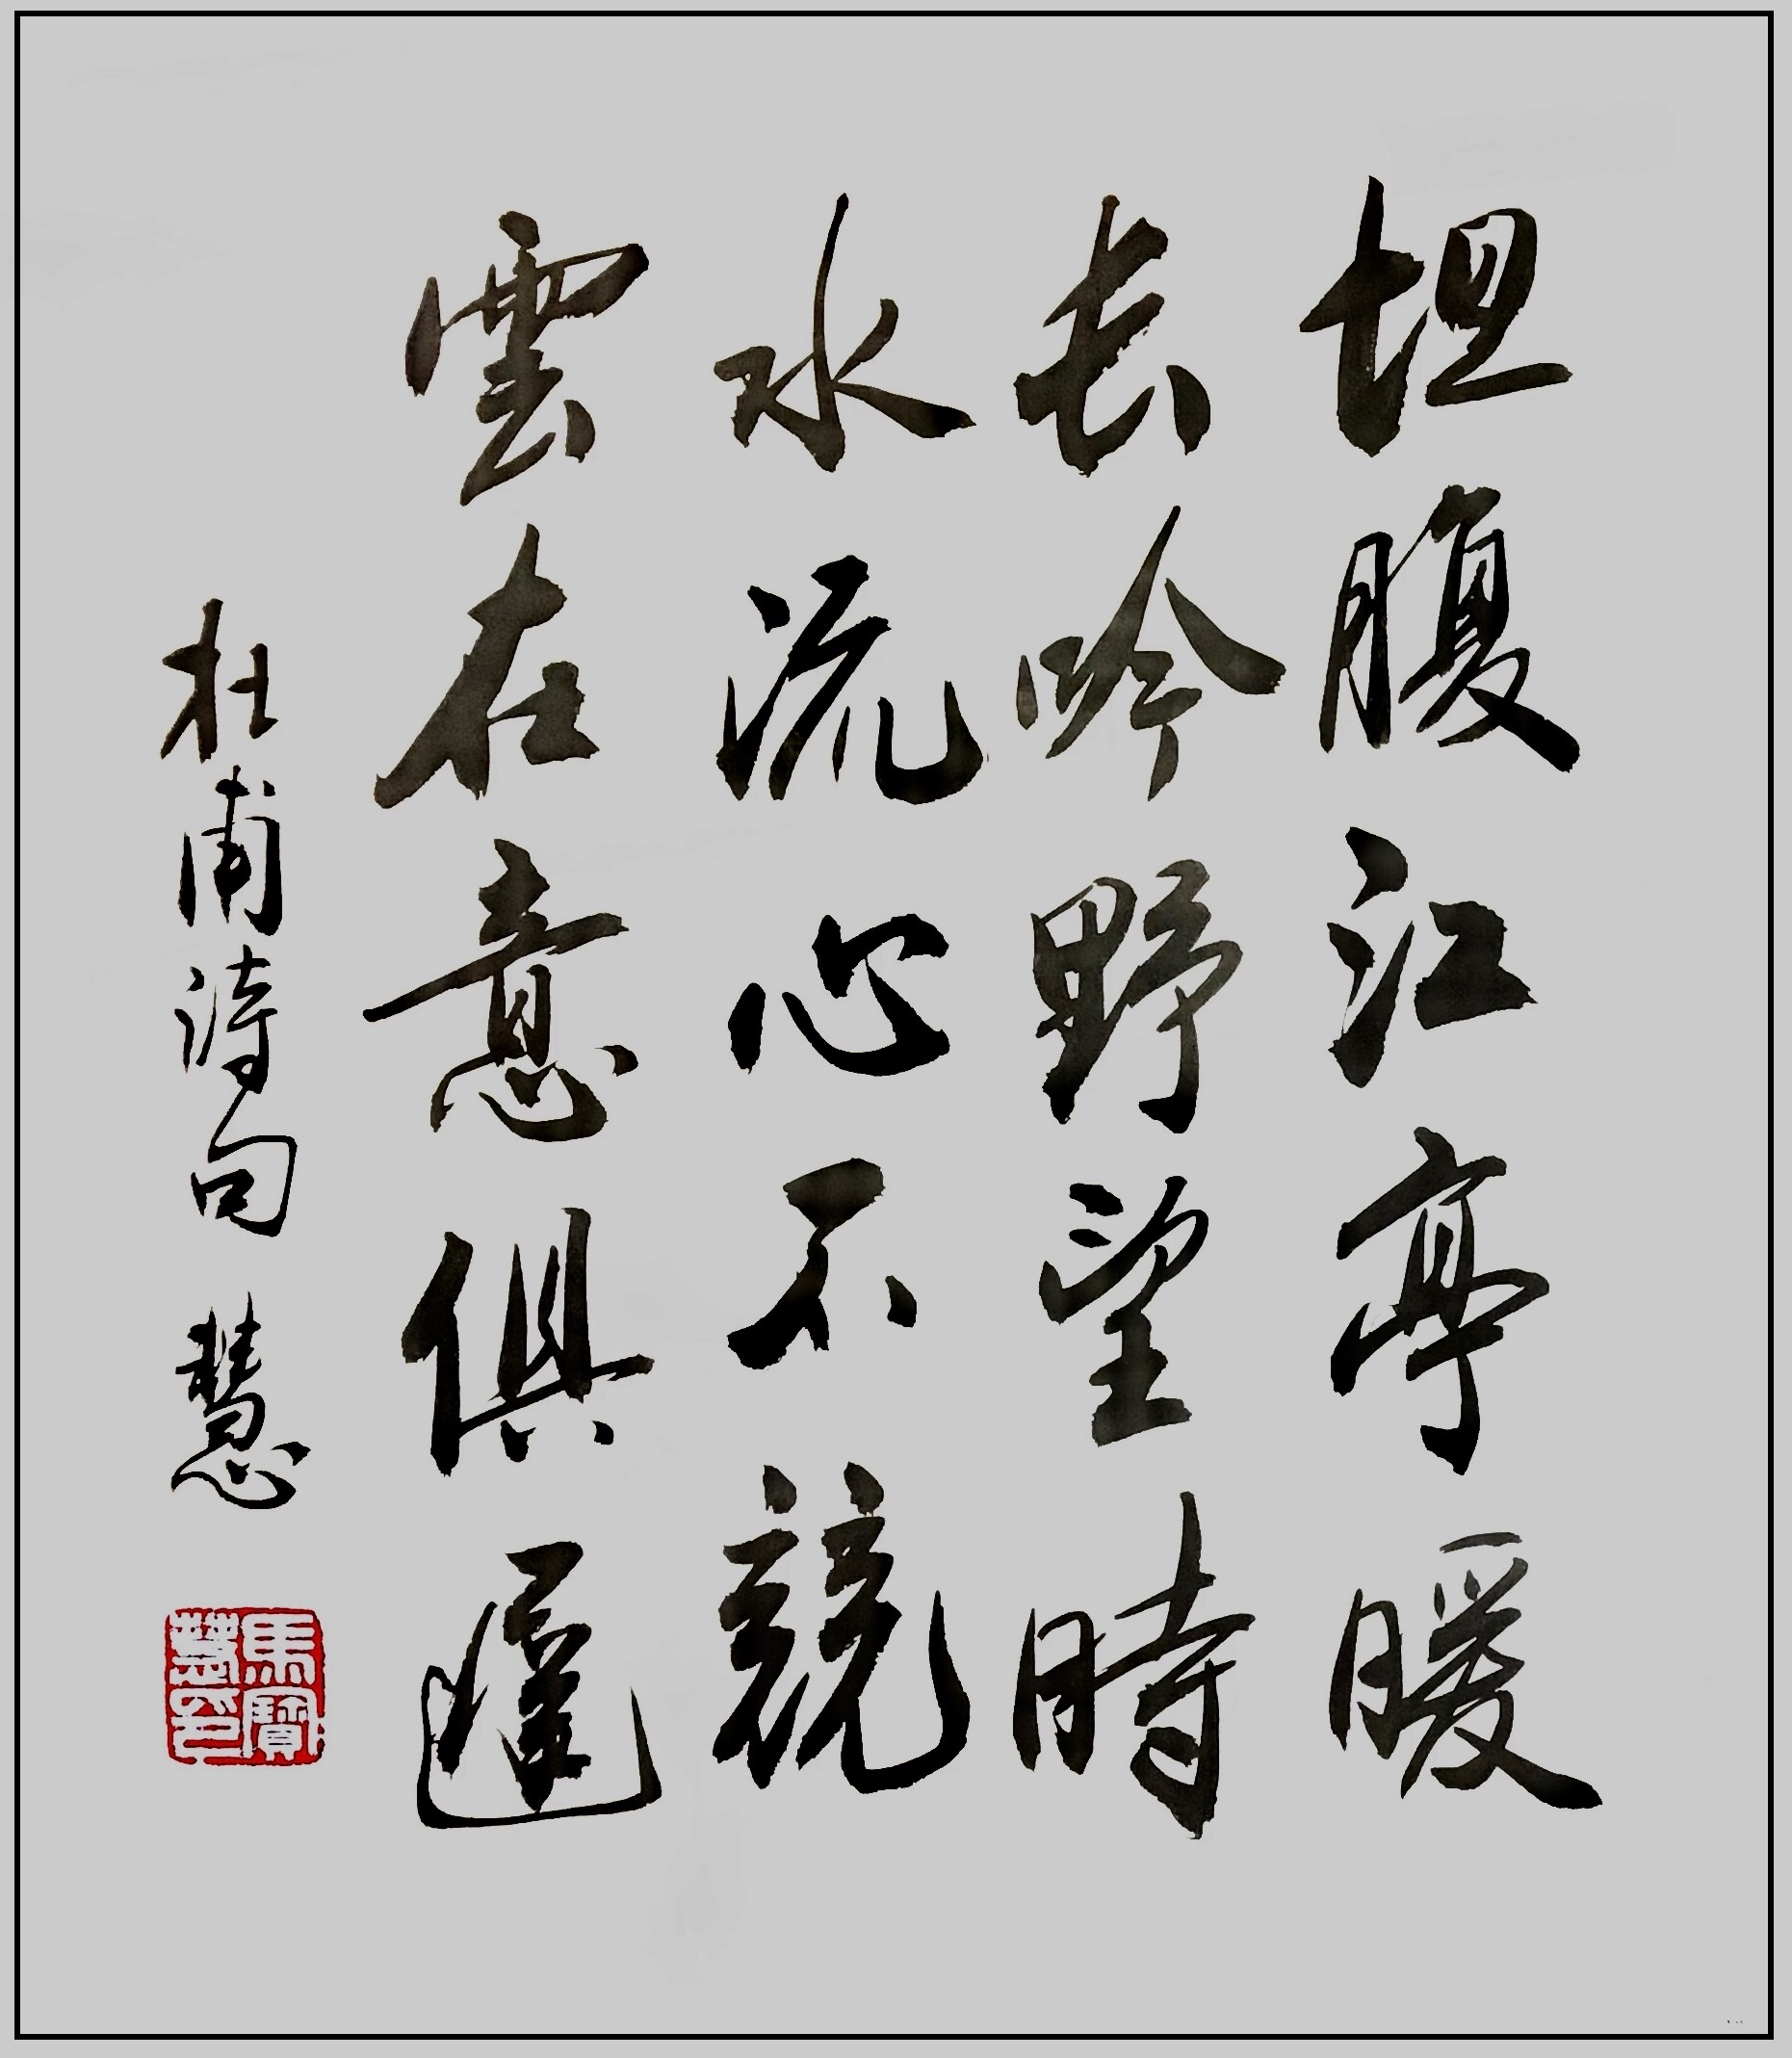 坦腹江亭暖
長吟野望時
水流心不競
雲在意俱遲
杜甫詩句 慧
馬寶慧印